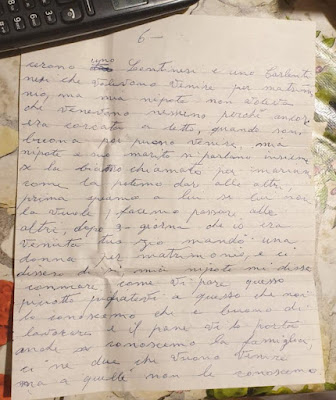 6-
cerono uno Lentinesi e uno Carlenti
nesi che volevano venire per matrim
nio, ma mia nipote non voleva
che venevono nessuno perché ancor
era corcata a letto, quando sari
bueona per puono venire, mia
nipote e suo marito si parlano insiem
se lu chiamato per
come la potemo dare alle altri,
prima quamo a lui se lui noi
la vuole, facemo passare alle
altri, dopo 3 giorna che io era
venuta tuo zio mandò una
donna per matrimonii, e ci
dissero di sì, mia nipote mi disse
commare come vi pare questo
piccotto pigiatevi a questo che noi
lo conoscemo che e buono di
lavorare e il pane vi lo porta
anche conoscemo la famiglia,
ci ne due che vuono venire
ma a quelle non le conoscemo